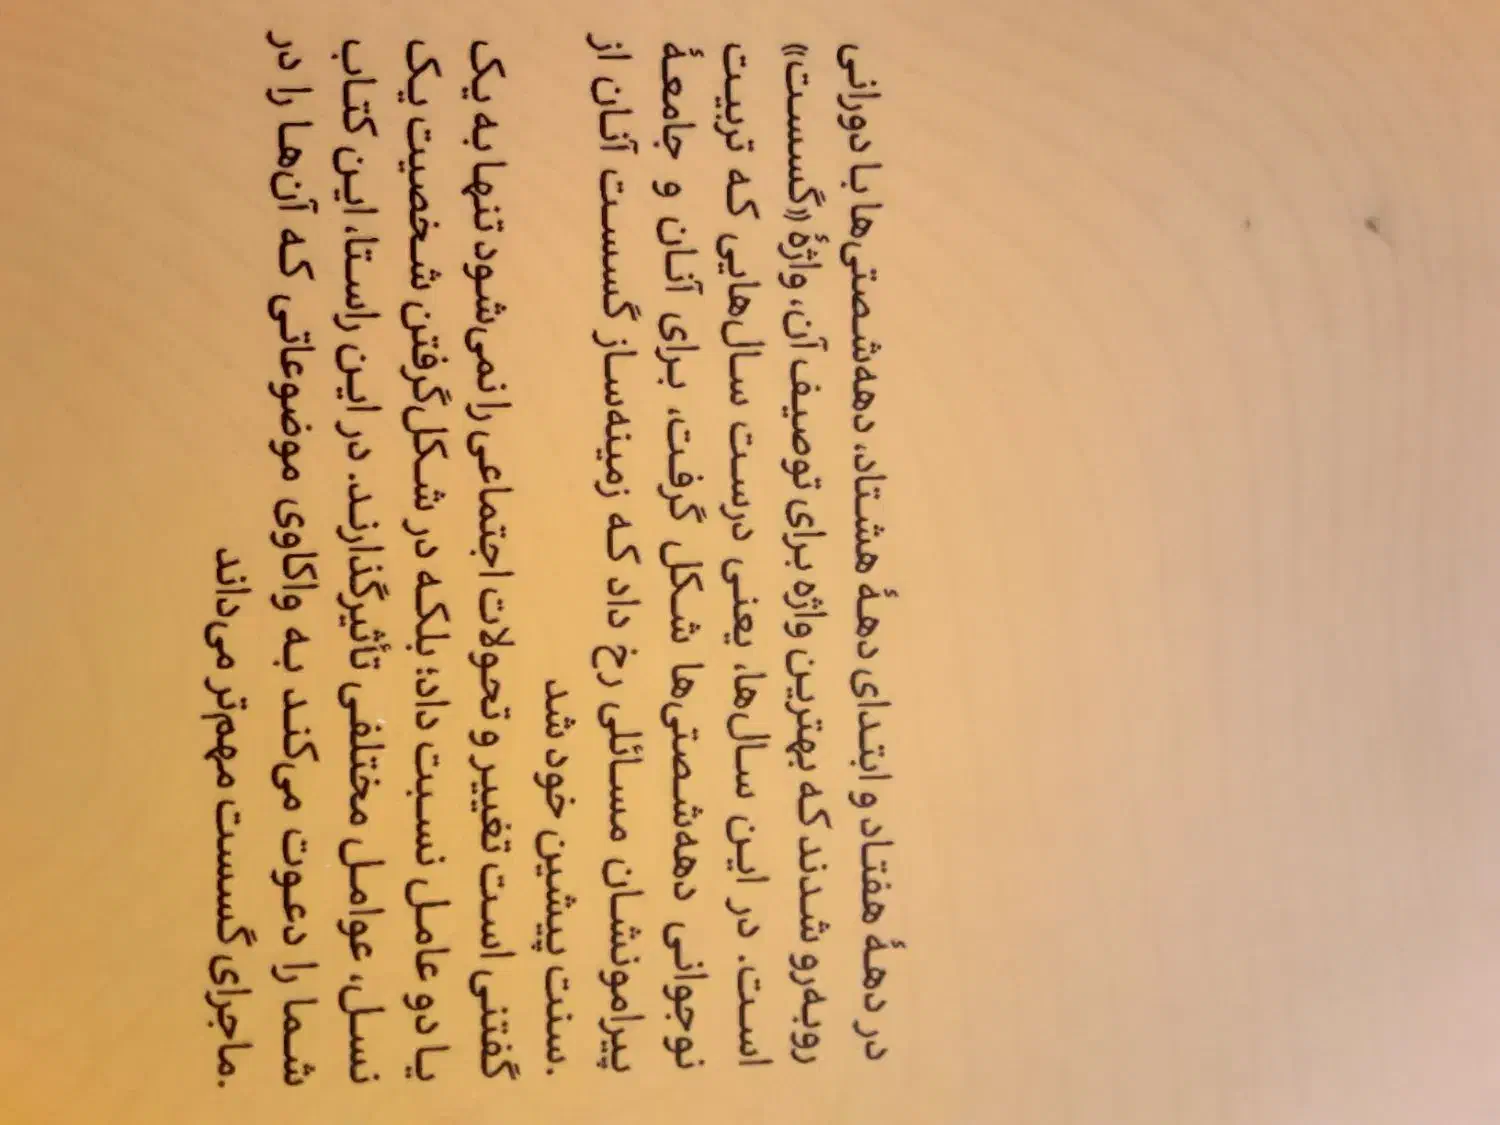 در دههٔ هفتاد و ابتدای دههٔ هشتاد، دهه‌شصتی‌ها با دورانی
روبه‌رو شدند که بهترین واژه برای توصیف آن، واژهٔ «گسست»
است. در این سال‌ها، یعنی درست سال‌هایی که تربیت
نوجوانی دهه‌شصتی‌ها شکل گرفت، برای آنان و جامعهٔ
پیرامونشان مسائلی رخ داد که زمینه‌ساز گسست آنان از
.سنت پیشین خود شد
گفتنی است تغییر و تحولات اجتماعی را نمی‌شود تنها به یک
یا دو عامل نسبت داد؛ بلکه در شکل‌گرفتن شخصیت یک
نسل، عوامل مختلفی تأثیرگذارند. در این راستا، این کتاب
شما را دعوت می‌کند به واکاوی موضوعاتی که آن‌ها را در
.ماجرای گسست مهم‌تر می‌داند